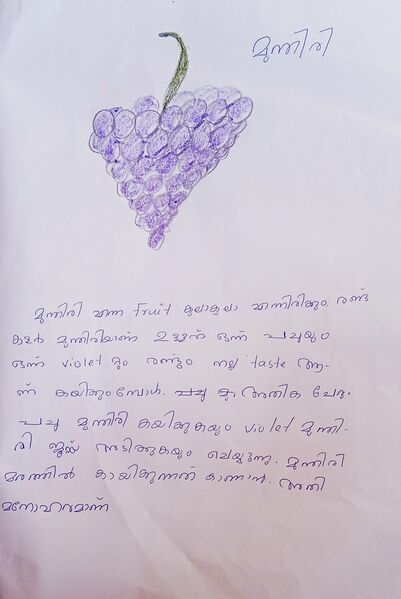 മുന്തിരി
മുന്തിരി എന്ന fruit കുലാകുലാ എന്നിരിക്കും. രണ്ടു
കളർ മുന്തിരിയാണ് ഉള്ളത് ഒന്ന് പച്ചയും
ഒന്ന് violet ഉം രണ്ടും നല്ല taste ആ-
ണ് കയിക്കുംമ്പോൾ. പച്ച അതിക പേരും
പച്ച മുന്തിരി കയിക്കുകയും violet മുന്തി-
രി ജൂയ്സ് അടിക്കുകയും ചെയ്യുന്നു. മുന്തിരി
മരത്തിൽ കായിക്കുന്നത് കാണാൻ അതി
മനോഹരമാണ്